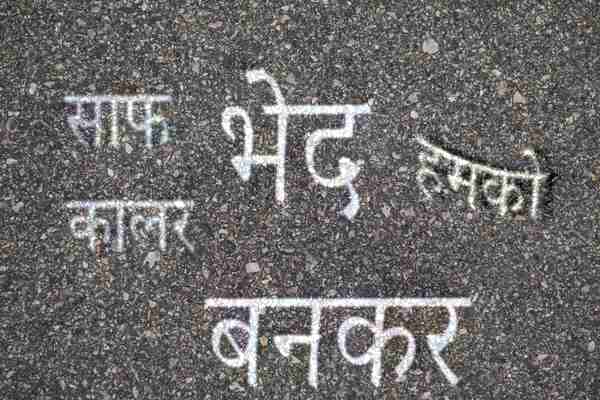 साफ भेद हमको
कालर
बनकर